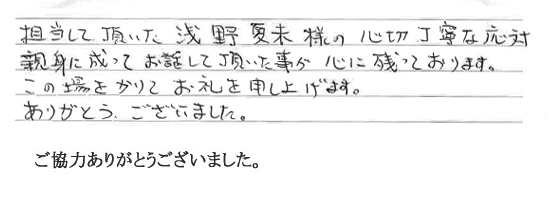 担当して頂いた 浅野夏未様の 心切丁寧な応対
親身に成って お話して頂いた事が 心に残っております。
この場をかりて お礼を申し上げます。
ありがとう、ございました。
ご協力ありがとうございました。